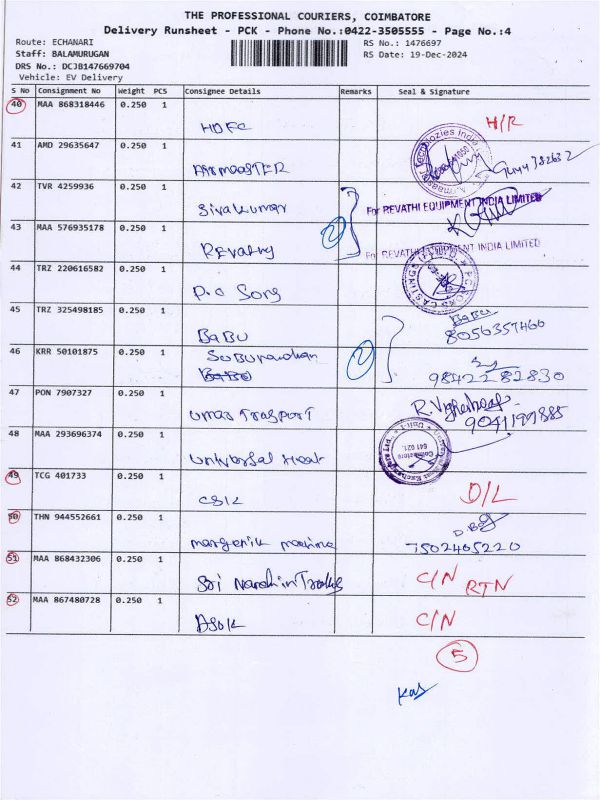 THE PROFESSIONAL COURIERS, COIMBATORE
Delivery Runsheet - PCK - Phone No.:0422-3505555 - Page No.:4
Route: ECHANARI
RS No.: 1476697
Staff: BALAMURUGAN
RS Date: 19-Dec-2024
DRS No.: DCJB147669704
Vehicle: EV Delivery
S No Consignment No Weight PCS Consignee Details Remarks Seal & Signature
40 MAA 868318446 0.250 1 HDFC H/R
41 AMD 29635647 0.250 1
42 TVR 4259936 0.250 1 Sivakumar For REVATHI EQUIPMENT INDIA LIMITED
43 MAA 576935178 0.250 1 Revathy 2 For REVATHI EQUIPMENT INDIA LIMITED
44 TRZ 220616582 0.250 1 P.G Sons
45 TRZ 325498185 0.250 1 BABU BABU
8056357466
46 KRR 50101875 0.250 1 2 9842282830
47 PON 7907327 0.250 1 Umar Trasport 9041199885
48 MAA 293696374 0.250 1 Universal Heat
Coimbatore
641 021.
49 TCG 401733 0.250 1 CSIL D/L
50 THN 944552661 0.250 1 machine 7502465220
51 MAA 868432306 0.250 1 Sri C/N RTN
52 MAA 867480728 0.250 1 ASOK C/N
5